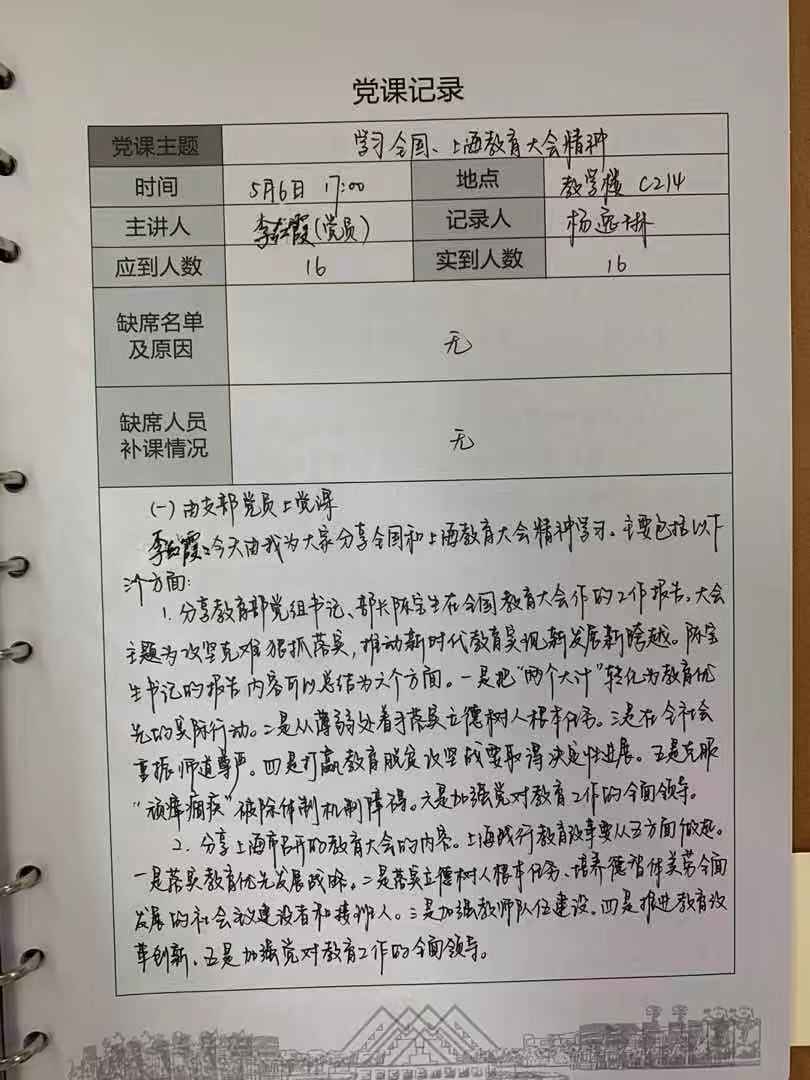 党课记录
党课主题 学习全国、上海教育大会精神
时间 5月6日 17:00 地点 教学楼 C214
主讲人 李红霞(党员) 记录人 杨逸琳
应到人数 16 实到人数 16
缺席名单
及原因 无
缺席人员
补课情况 无
(一)由支部党员上党课
李红霞:今天由我为大家分享全国和上海教育大会精神学习。主要包括以下
三个方面:
1. 分享教育部党组书记、部长陈宝生在全国教育大会作的工作报告。大会
主题为攻坚克难 狠抓落实,推动新时代教育实现新发展新跨越。陈宝
生书记的报告内容可以总结为六个方面。一是把“两个大计”转化为教育优
先的实际行动。二是从薄弱处着手落实立德树人根本任务。三是在全社会
重振师道尊严。四是打赢教育脱贫攻坚战要取得决定性进展。五是克服
“顽瘴痼疾”破除体制机制障碍。六是加强党对教育工作的全面领导。
2. 分享上海市召开的教育大会的内容。上海践行教育改革要从五方面做起。
一是落实教育优先发展战略。二是落实立德树人根本任务、培养德智体美劳全面
发展的社会主义建设者和接班人。三是加强教师队伍建设。四是推进教育改
革创新。五是加强党对教育工作的全面领导。